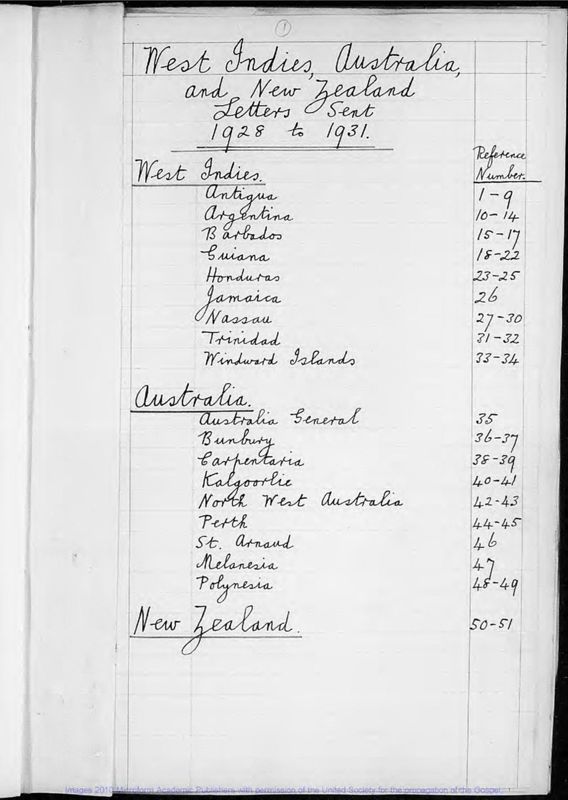 1
West Indies, Australia,
and New Zealand
Letters Sent
1928 to 1931.
Reference
Number.
West Indies.
Antigua 1-9
Argentina 10-14
Barbados 15-17
Guiana 18-22
Honduras 23-25
Jamaica 26
Nassau 27-30
Trinidad 31-32
Windward Islands 33-34
Australia.
Australia General 35
Bunbury 36-37
Carpentaria 38-39
Kalgoorlie 40-41
North West Australia 42-43
Perth 44-45
St. Arnaud 46
Melanesia 47
Polynesia 48-49
New Zealand. 50-51
Images 2010 Microform Academic Publishers with permission of the United Society for the propagation of the Gospel